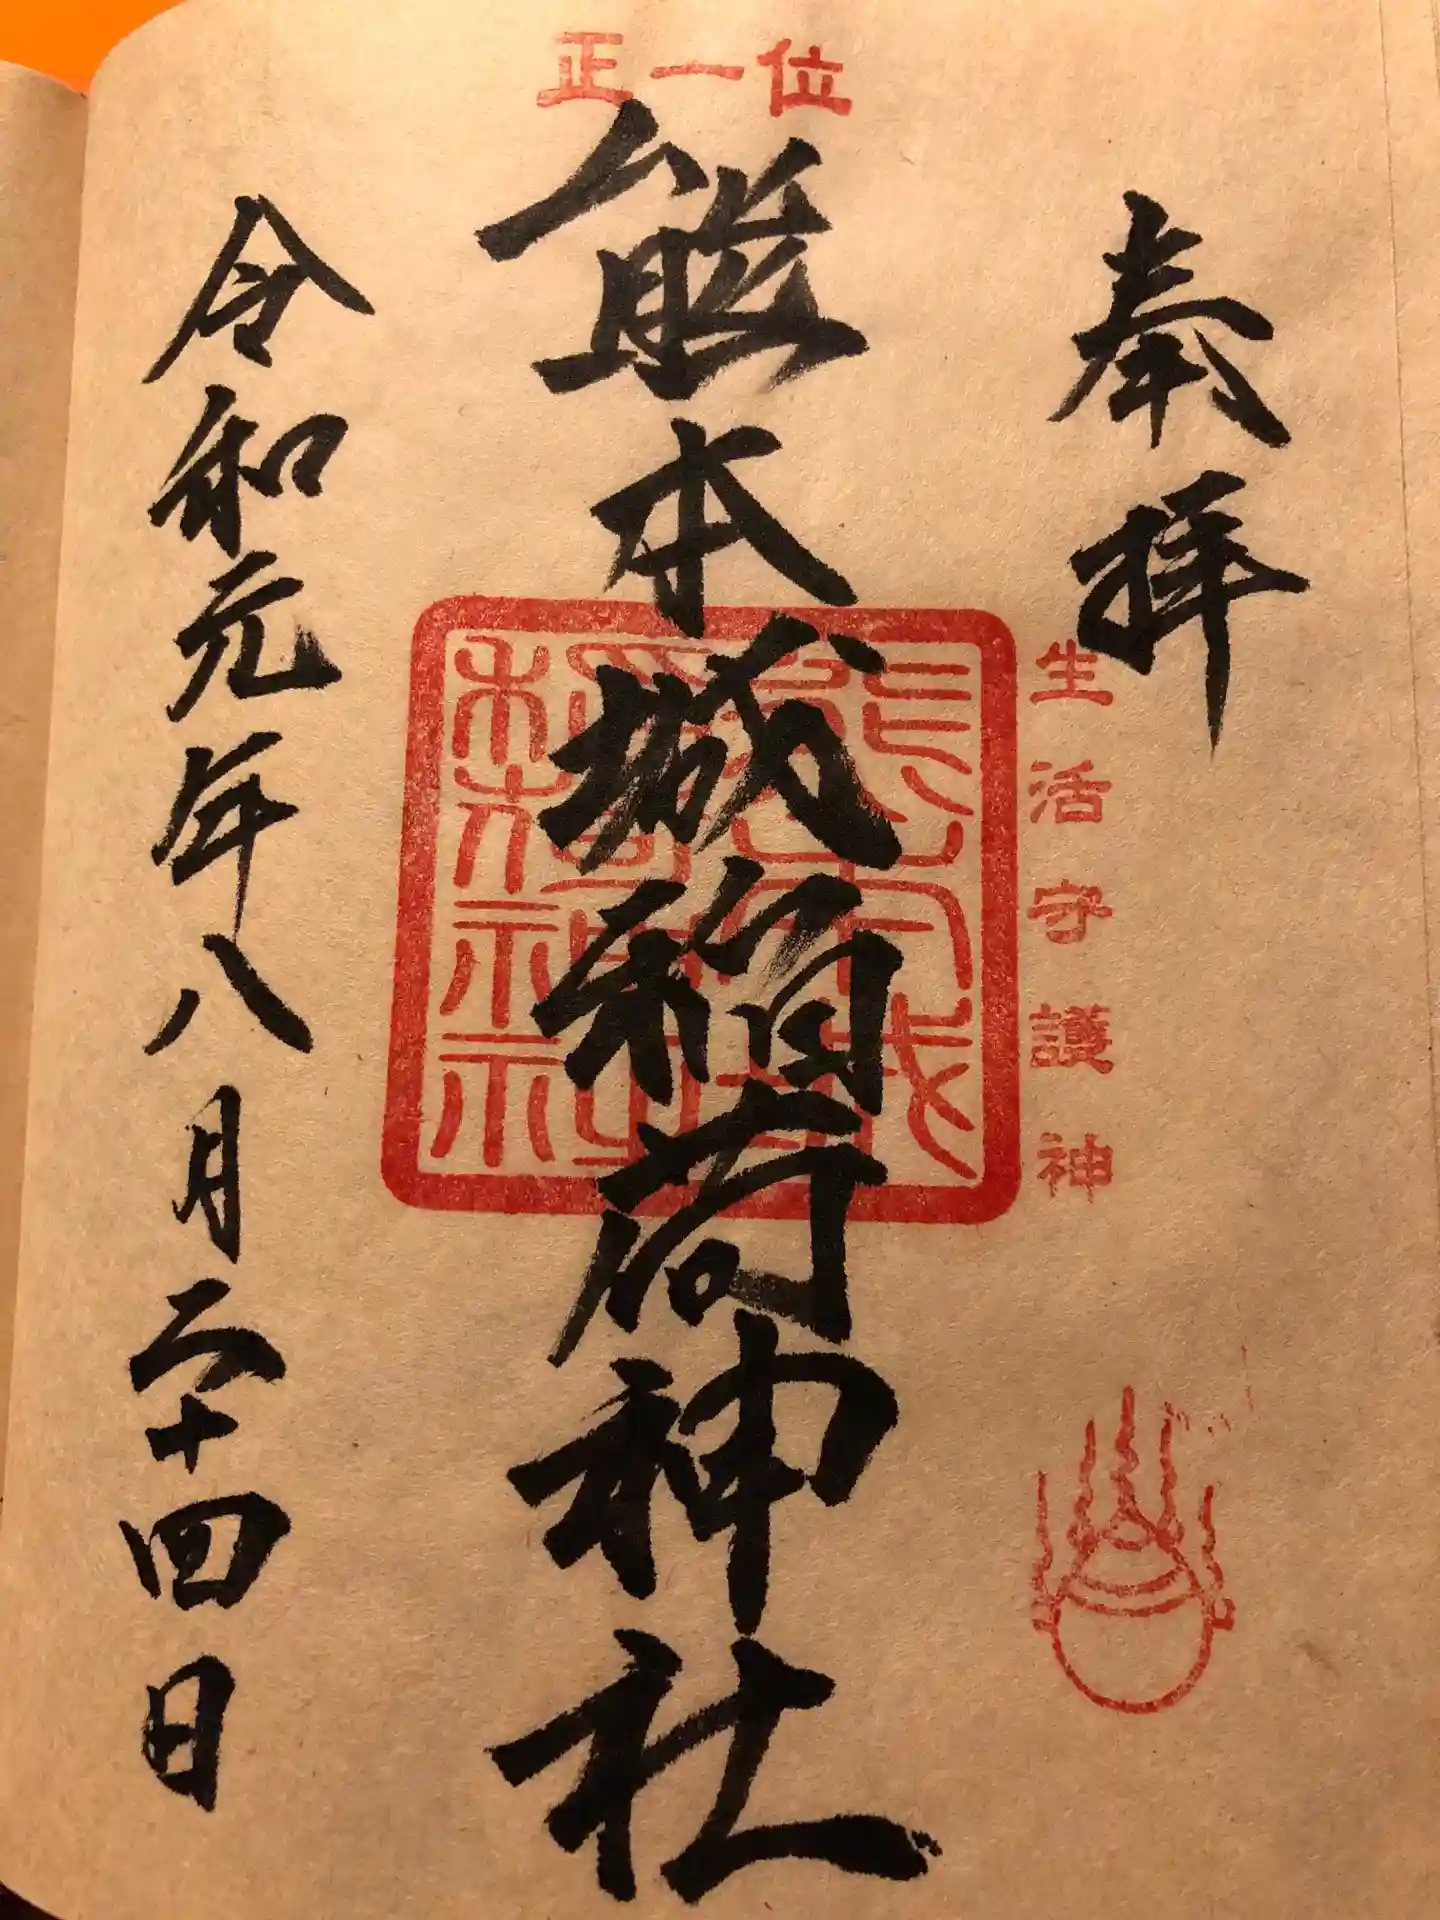 正一位
奉拝
生活守護神
熊本城稲荷神社
令和元年八月二十四日